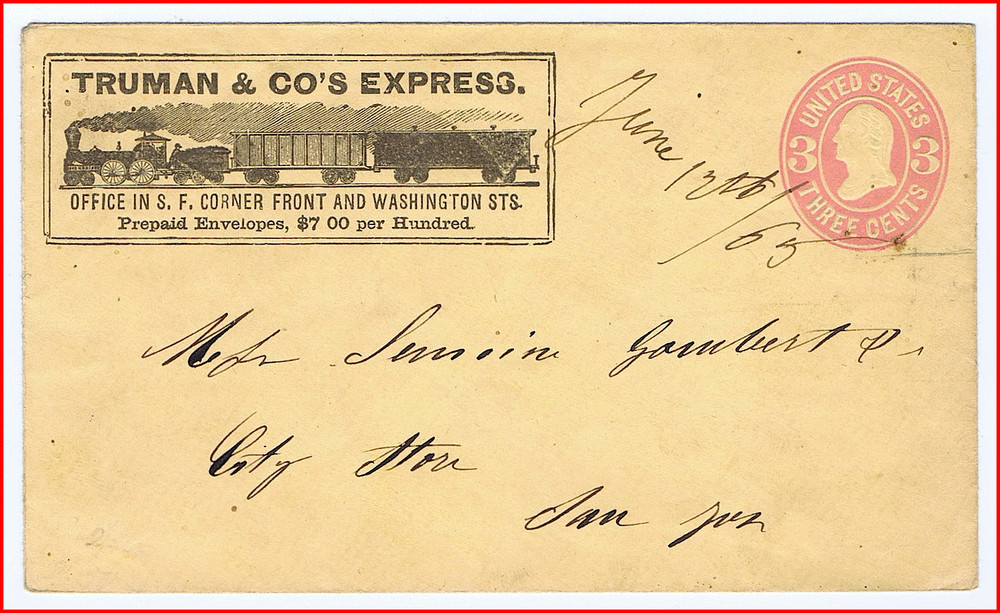 TRUMAN & CO'S EXPRESS.
OFFICE IN S. F. CORNER FRONT AND WASHINGTON STS.
Prepaid Envelopes, $7 00 per Hundred.
June 12th/65
UNITED STATES
3 3
THREE CENTS
Gambert &
City Store
San Jose